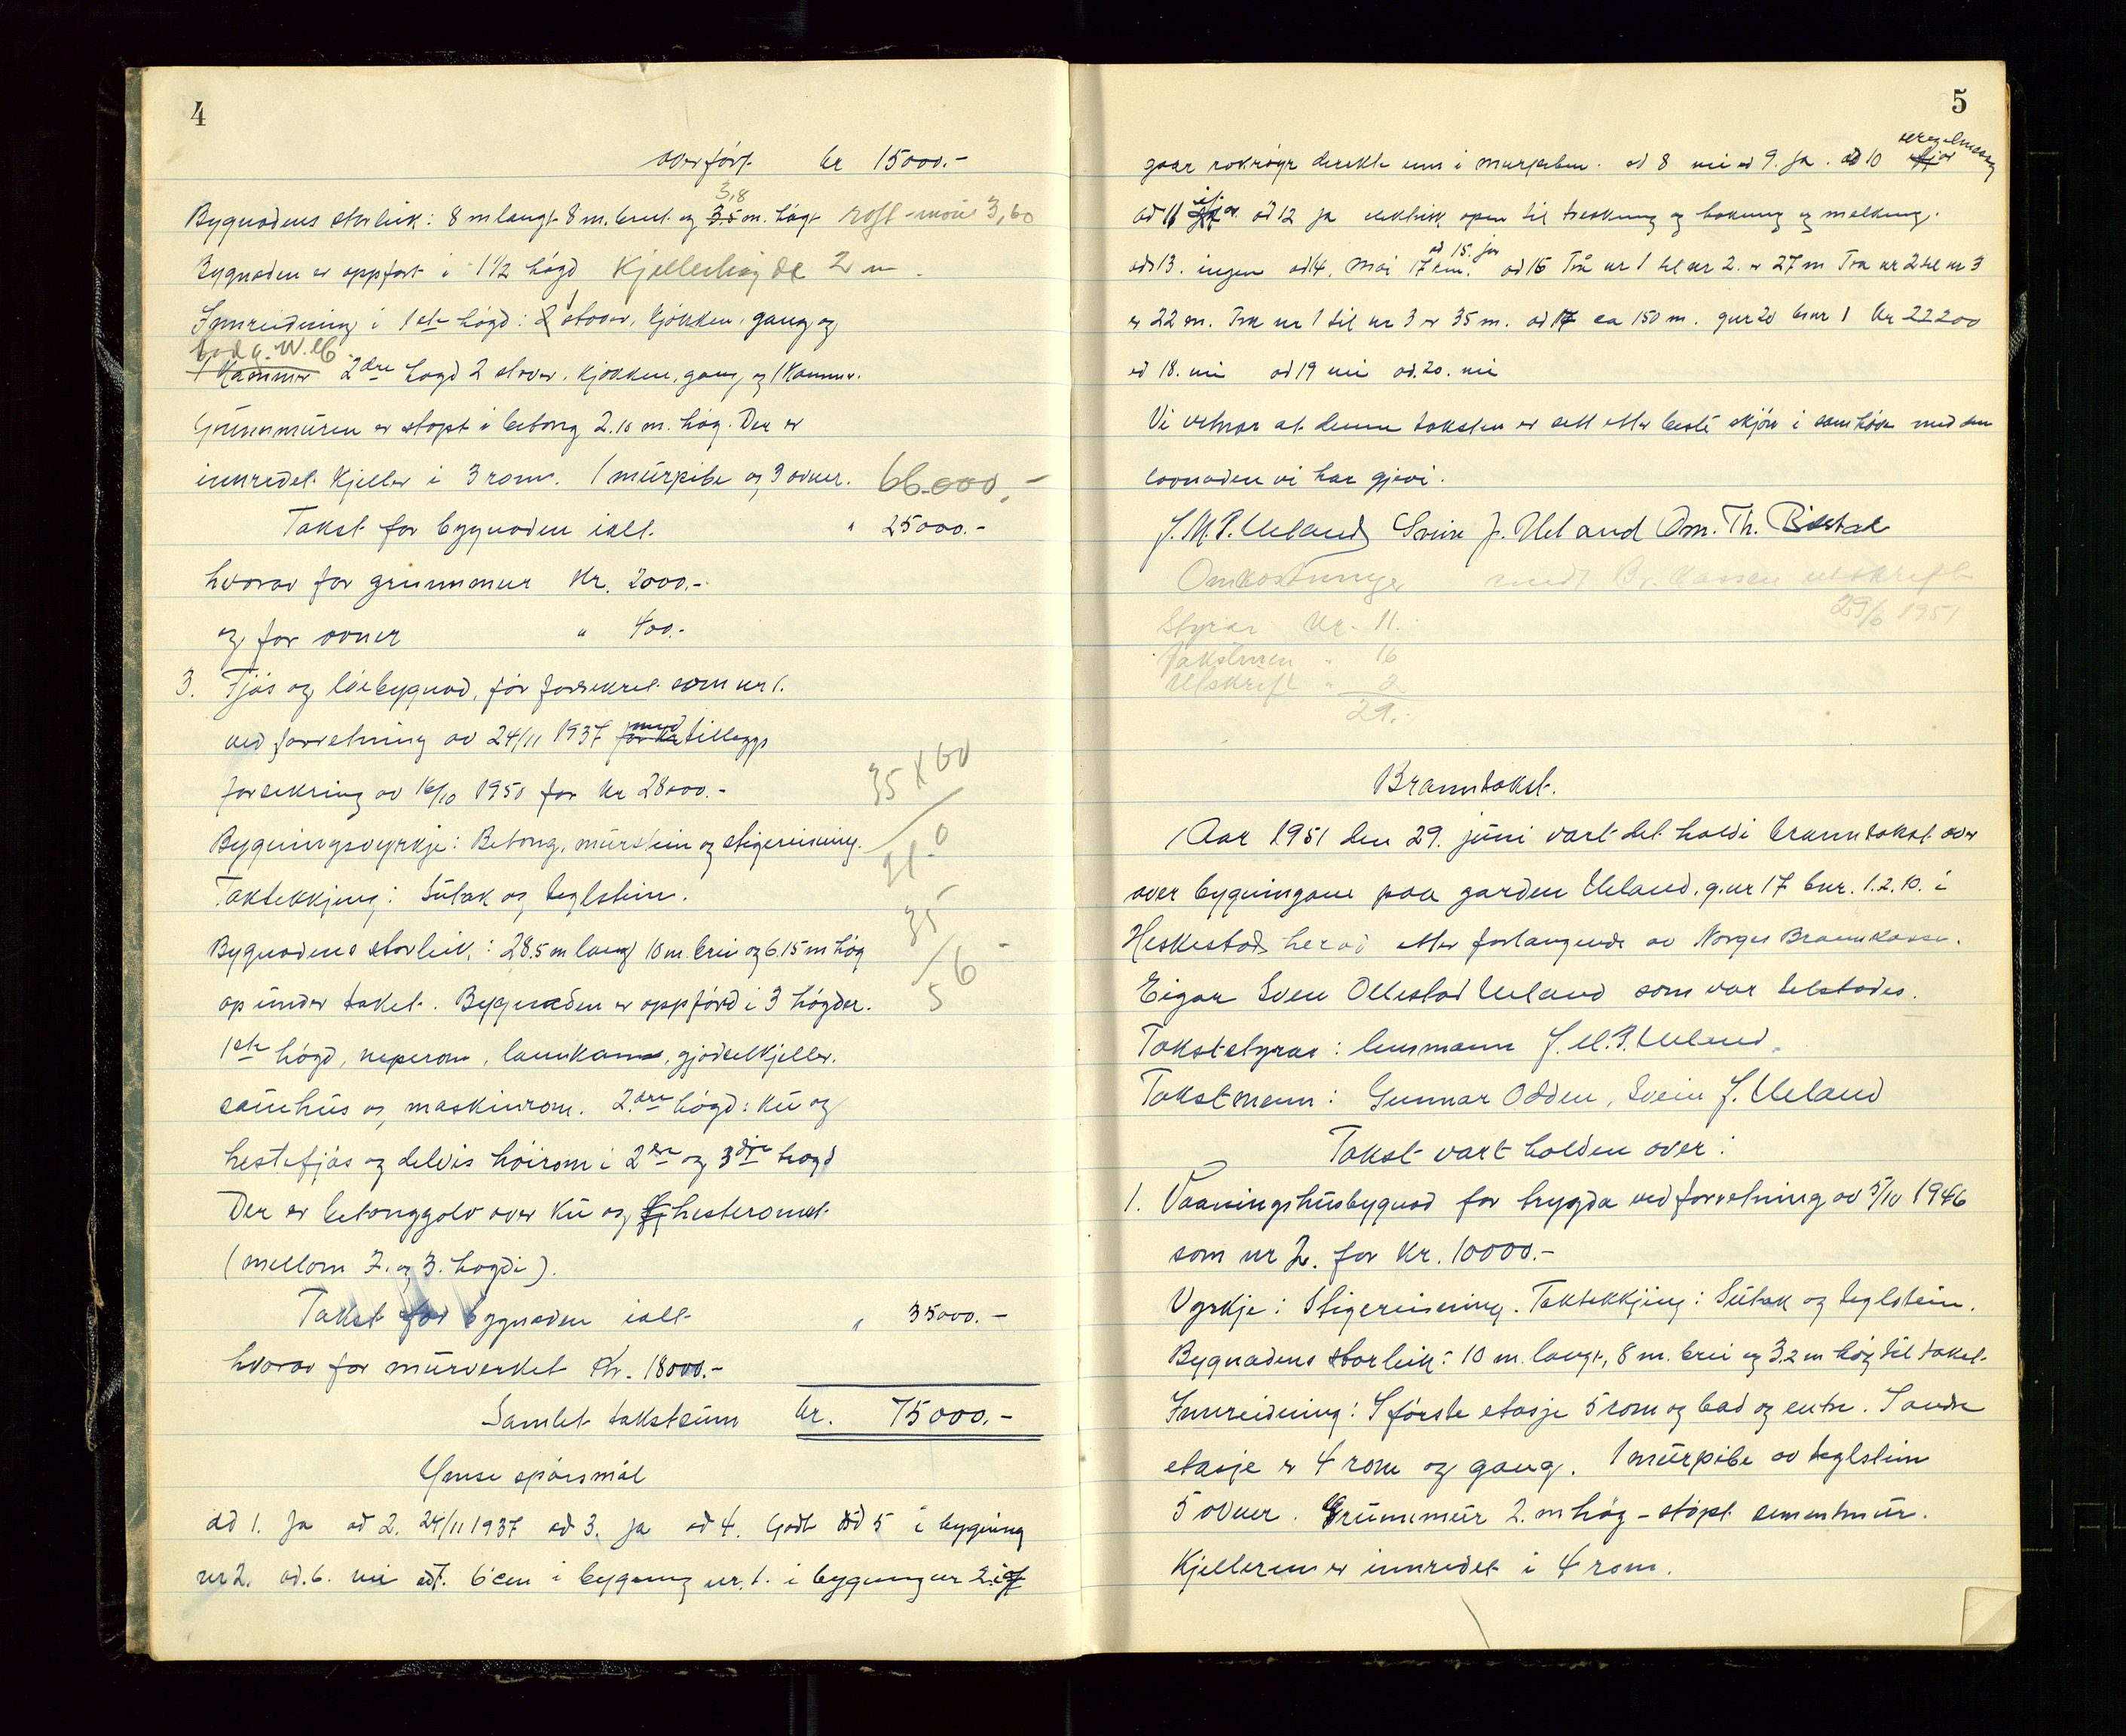 4
overfört kr 15000.-
3,8
Bygnadens storleik: 8 m langt 8 m. breit og 3.5 m. högt röst-möne 3,60
Bygnaden er oppført i 1 1/2 högd Kjellerhøgde 2 m.
1
Innreidning i 1ste högd: 2 stover, kjökken, gang og
bad g. W.C
1 Kammer 2dre høgd 2 stover, kjökken, gang og 1 Kammer.
Grunnmuren er støpt i betong 2.10 m. høg. Der er
innredet Kjeller i 3 rom. 1 murpibe og 3 ovner. 66.000.-
Takst for bygnaden ialt " 25000.-
hvorav for grunnmur Kr. 2000.-
og for ovner " 400.-
3. Fjös og löebygnad, för forsekret som nr 1.
ved forretning av 24/11 1937 for kr med tilleggs
forsekring av 16/10 1950 for kr 28000.-
35 x 60
Bygningsvyrkje: Betong, murstein og stigereisning.
21.0
Taktekkjing: Sutak og teglstein.
35
Bygnadens storleik: 28.5 m lang 10 m. brei og 6.15 m høg
6
op under taket. Bygnaden er oppförd i 3 högder.
5
1ste högd, neperom, laukammer, gjødselkjeller.
sauehus og maskinrom. 2.dre högd: ku og
hestefjös og delvis höirom i 2dre og 3dje høgd
Der er betonggolv over ku og fj hesteromet
(mellom 2. og 3. høgdi).
Takst for bygnaden ialt " 35000.-
hvorav for murverket Kr. 18000.-
Samlet takstsum kr. 75000.-
Ymse spörsmål
ad 1. Ja ad 2. 24/11 1937 ad 3. ja ad 4. Godt ad 5 i bygning
nr 2. ad. 6. nei ad 7. 6 cm i bygning nr. 1. i bygning nr 2 og
5
uregelmessig
gaar rokrøyr direkte inn i murpiben. ad 8 nei ad 9. ja. ad 10
ad 11 ad 12 ja elektrisk, open til treskning og bakning og melkning.
ad 15. ja
ad 13. ingen ad 14, Moi 17 km. ad 16 Fra nr 1 til nr 2. er 27 m Fra nr 2 til nr 3
er 22 m. Fra nr 1 til nr 3 er 35 m. ad 17 ca 150 m. gnr 20 bnr 1 kr 22200
ad 18. nei ad 19 nei ad. 20. nei
Vi vitnar at denne taksten er sett etter beste skjön i samhöve med den
lovnaden vi har gjevi.
J. M. P. Ueland Svein J. Ueland Om. Th. Birstal
Omkostninger sendt Br. kassen utskrift
29/6 1951
Styrar Kr. 11.
Takstmen " 16
Utskrift " 2
29.-
Branntakst.
Aar 1951 den 29. juni vart det haldi branntakst over
over bygningane paa garden Ueland, g.nr 17 bnr. 1.2.10. i
Heskestads herad etter forlangende av Norges Brannkasse.
Eigar Sven Ollestad Ueland som var tilstades.
Takststyrar: lensmann J. M. P. Ueland.
Takstmenn: Gunnar Odden, Svein J. Ueland
Takst vart holden over:
1. Vaaningshusbygnad for trygda ved forretning av 5/10 1946
som nr 2. for Kr. 10000.-
Vyrkje: Stigereisning. Taktekkjing: Sutak og teglstein.
Bygnadens storleik: 10 m. langt, 8 m. brei og 3.2 m høg til taket.
Innreidning: I förste etasje 5 rom og bad og entre. I andre
etasje er 4 rom og gang. 1 murpibe av teglstein
5 ovner. Grunnmur 2. m høg - støpt sementmur.
Kjelleren er innredet i 4 rom.